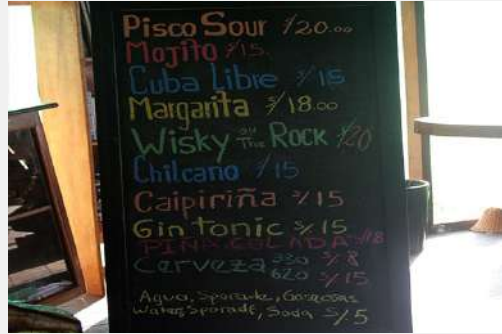 Pisco Sour S/20.00
Mojito S/15
Cuba Libre S/15
Margarita S/18.00
Wisky on The Rock S/20
Chilcano S/15
Caipiriña S/15
Gin tonic S/15
PIÑA COLADA S/18
Cerveza 330 S/8
620 S/15
Agua, Sporade, Gaseosas
Water, Sporade, Soda S/.5